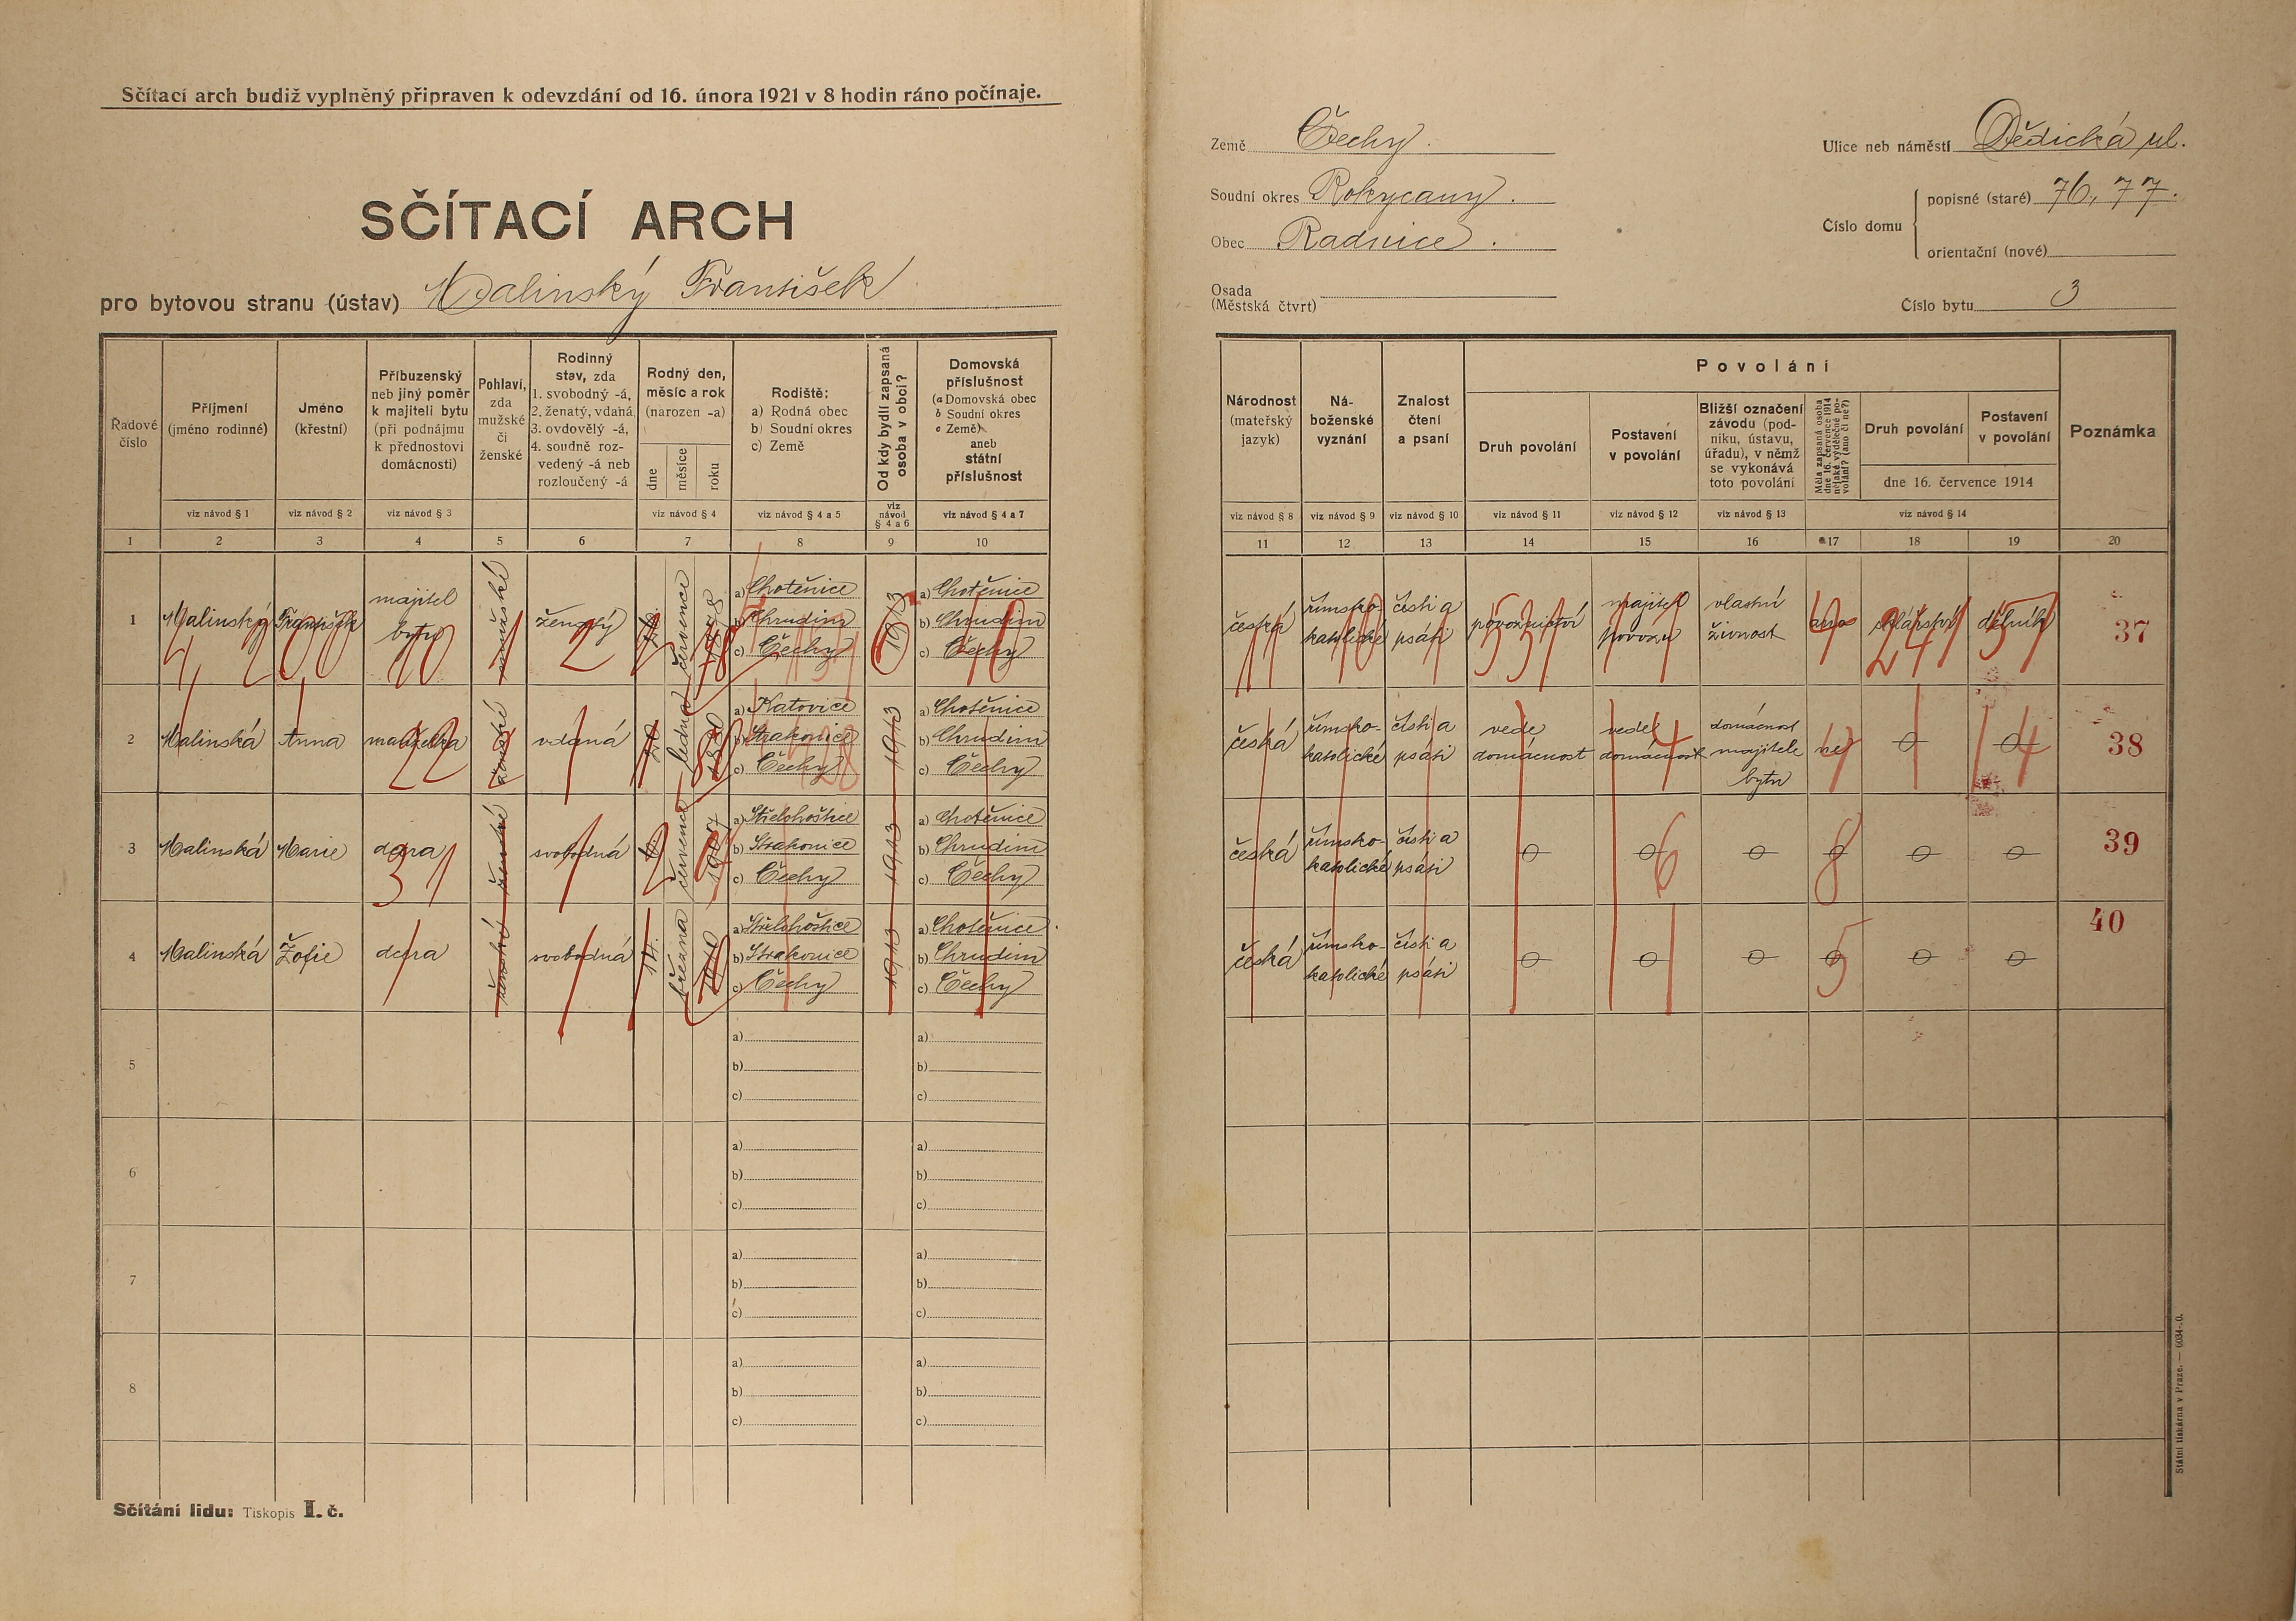 Sčítací arch budiž vyplněný připraven k odevzdání od 16. února 1921 v 8 hodin ráno počínaje.
SČÍTACÍ ARCH
pro bytovou stranu (ústav) Malinský František
Země Čechy.
Soudní okres Rokycany.
Obec Radnice.
Osada
(Městská čtvrť)
Ulice neb náměstí Dědická ul.
Číslo domu
popisné (staré) 76, 77.
orientační (nové)
Číslo bytu 3
Řadové číslo
Příjmení (jméno rodinné)
Jméno (křestní)
Příbuzenský neb jiný poměr k majiteli bytu (při podnájmu k přednostovi domácnosti)
Pohlaví, zda mužské či ženské
Rodinný stav, zda 1. svobodný -á, 2. ženatý, vdaná, 3. ovdovělý -á, 4. soudně rozvedený -á neb rozloučený -á
Rodný den, měsíc a rok (narozen -a)
dne měsíce roku
Rodiště: a) Rodná obec b) Soudní okres c) Země
Od kdy bydlí zapsaná osoba v obci?
Domovská příslušnost (a Domovská obec b Soudní okres c Země) aneb státní příslušnost
viz návod § 1 viz návod § 2 viz návod § 3 viz návod § 4 viz návod § 4 a 5 viz návod § 4 a 6 viz návod § 4 a 7
1 2 3 4 5 6 7 8 9 10
Národnost (mateřský jazyk)
Náboženské vyznání
Znalost čtení a psaní
Povolání
Druh povolání
Postavení v povolání
Bližší označení závodu (podniku, ústavu, úřadu), v němž se vykonává toto povolání
Měla zapsaná osoba dne 16. července 1914 nějaké výdělečné povolání? (ano či ne?)
Druh povolání
Postavení v povolání
dne 16. července 1914
Poznámka
viz návod § 8 viz návod § 9 viz návod § 10 viz návod § 11 viz návod § 12 viz návod § 13 viz návod § 14
11 12 13 14 15 16 17 18 19 20
1 Malinský František majitel bytu mužské ženatý července
a) Chotěnice
b) Chrudim
c) Čechy
1913
a) Chotěnice
b) Chrudim
c) Čechy
česká římsko-katolické čísti a psáti povoznictví majitel povozu vlastní živnost ano sklářství dělník 37
2 Malinská Anna manželka ženské vdaná ledna
a) Katovice
b) Strakonice
c) Čechy
1913
a) Chotěnice
b) Chrudim
c) Čechy
česká římsko-katolické čísti a psáti vede domácnost vede domácnost domácnost majitele bytu ne 38
3 Malinská Marie dcera ženské svobodná července 1907
a) Střelohoštice
b) Strakonice
c) Čechy
1913
a) Chotěnice
b) Chrudim
c) Čechy
česká římsko-katolické čísti a psáti 39
4 Malinská Žofie dcera ženské svobodná 14. března 1910
a) Střelohoštice
b) Strakonice
c) Čechy
1913
a) Chotěnice
b) Chrudim
c) Čechy
česká římsko-katolické čísti a psáti 40
5 a) b) c) a) b) c)
6 a) b) c) a) b) c)
7 a) b) c) a) b) c)
8 a) b) c) a) b) c)
Sčítání lidu: Tiskopis I. č.
Státní tiskárna v Praze. — 6034-.0.